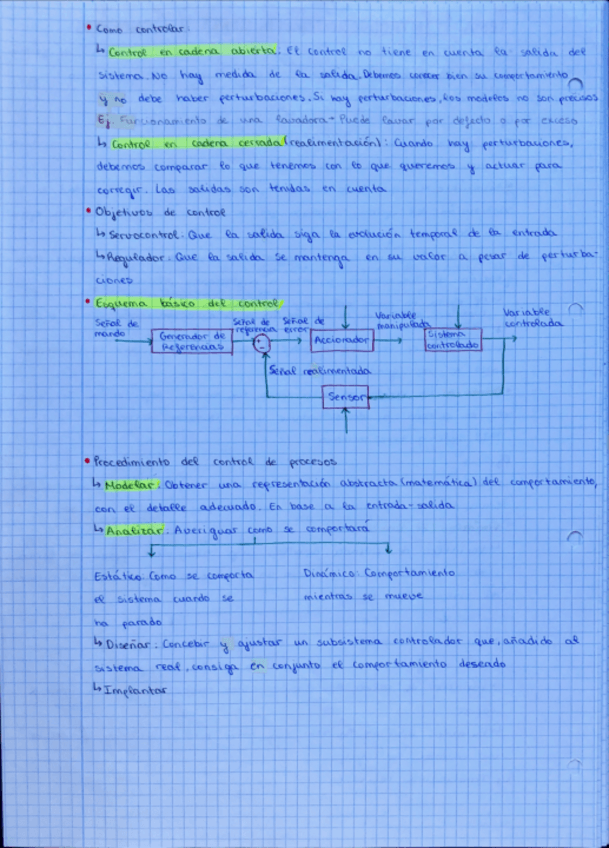 • Como controlar:
↳ Control en cadena abierta: El control no tiene en cuenta la salida del
sistema. No hay medida de la salida. Debemos conocer bien su comportamiento
y no debe haber perturbaciones. Si hay perturbaciones, los modelos no son precisos
Ej Funcionamiento de una lavadora - Puede lavar por defecto o por exceso
↳ Control en cadena cerrada (realimentación): Cuando hay perturbaciones,
debemos comparar lo que tenemos con lo que queremos y actuar para
corregir. Las salidas son tenidas en cuenta
• Objetivos de control
↳ Servocontrol: Que la salida siga la evolución temporal de la entrada
↳ Regulador: Que la salida se mantenga en su valor a pesar de perturba-
ciones
• Esquema básico del control
Señal de
mando
Generador de
Referencias
Señal de
referencia
+
-
Señal de
error
Accionador
Variable
manipulada
Sistema
controlado
Variable
controlada
Señal realimentada
Sensor
• Procedimiento del control de procesos
↳ Modelar: Obtener una representación abstracta (matemática) del comportamiento,
con el detalle adecuado. En base a la entrada-salida
↳ Analizar: Averiguar como se comportará
Estático: Como se comporta
el sistema cuando se
ha parado
Dinámico: Comportamiento
mientras se mueve
↳ Diseñar: Concebir y ajustar un subsistema controlador que, añadido al
sistema real, consiga en conjunto el comportamiento deseado
↳ Implantar